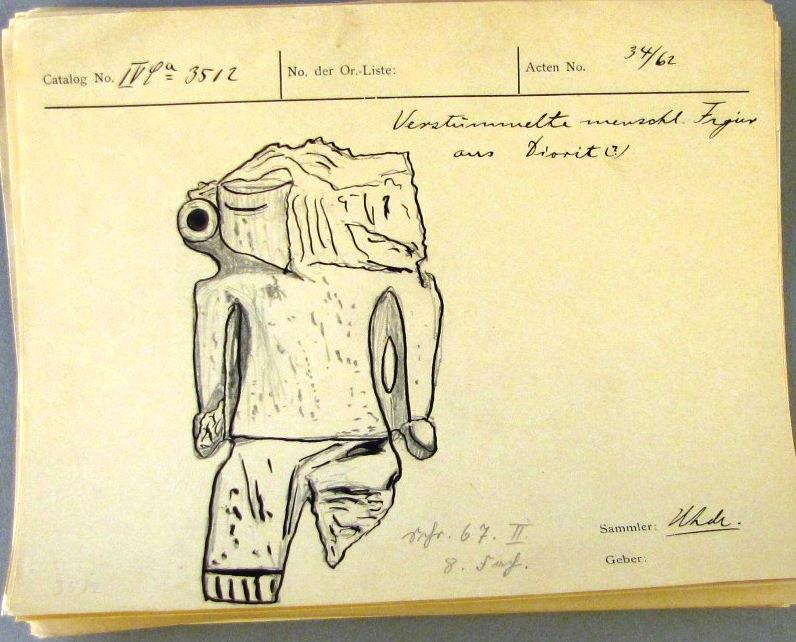 Catalog No. IV Ca 3512
No. der Or.-Liste:
Acten No. 34/62
Verstümmelte menschl. Figur
aus Diorit (?)
67. II.
8.
Sammler: Uhde.
Geber:
3512